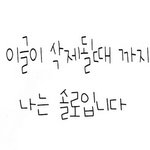 이글이 삭제됄때 까지
나는 솔로입니다